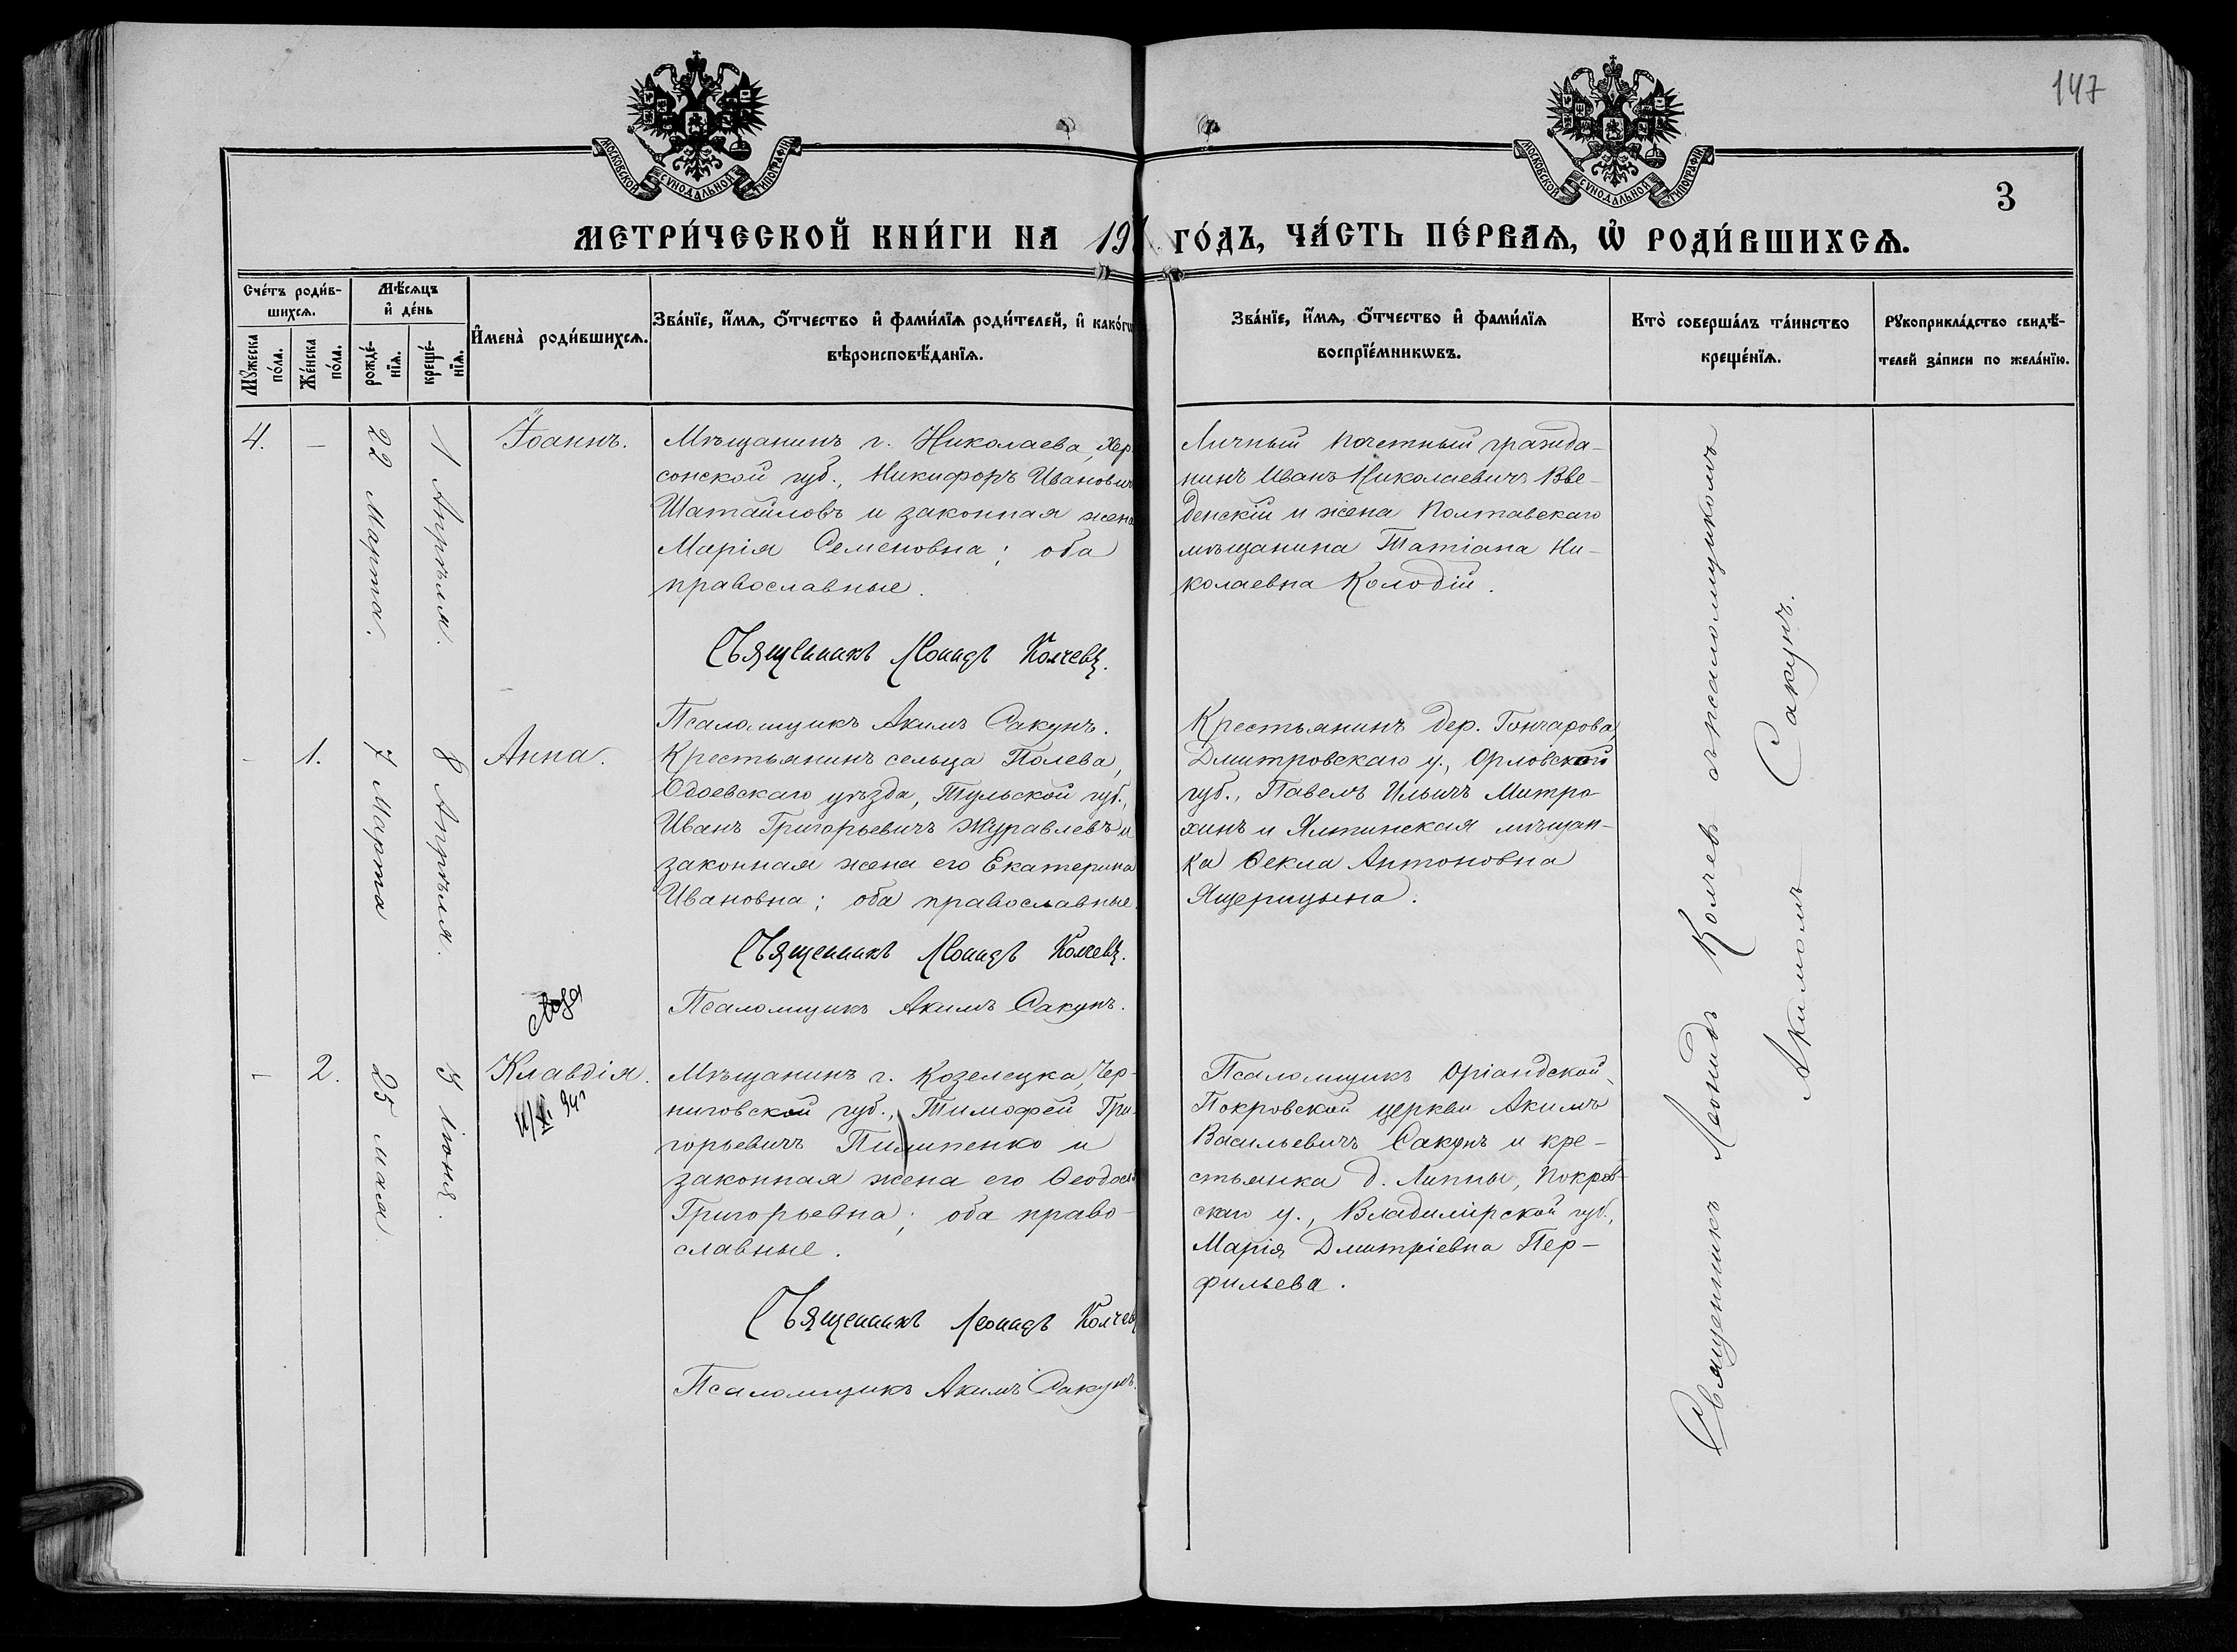 147
МОСКОВСКОЙ СѴНОДАЛЬНОЙ ТИПОГРАФІИ
МОСКОВСКОЙ СѴНОДАЛЬНОЙ ТИПОГРАФІИ
3
МЕТРИ́ЧЕСКОЙ КНИ́ГИ НА 191 ГО́ДЪ, ЧА́СТЬ ПЕ́РВАѦ, Ѡ҆ РОДИ́ВШИХСѦ.
Сче́тъ роди́в-
шихсѧ.
Мꙋ́жеска по́ла.
Же́нска по́ла.
Мѣ́сѧцъ
и҆ де́нь
рожде́-
нїѧ.
креще́-
нїѧ.
И҆мена̀ роди́вшихсѧ.
Зва́нїе, и҆́мѧ, ѻ҆́тчество и҆ фами́лїѧ роди́телей, и҆ како́гѡ
вѣроисповѣ́данїѧ.
Зва́нїе, и҆́мѧ, ѻ҆́тчество и҆ фами́лїѧ
воспрїе́мникѡвъ.
Кто̀ соверша́лъ та́инство
креще́нїѧ.
Рꙋкоприкла́дство свидѣ́-
телей за́писи по жела́нїю.
4.
-
22 Марта.
1 Апрѣля.
Іоаннъ.
Мѣщанинъ г. Николаева, Хер
сонской губ., Никифоръ Иванович
Шатайловъ и законная жена
Марія Семеновна; оба
православные.
Священникъ Леонидъ Колчевъ.
Псаломщикъ Акимъ Сакунъ.
Личный почетный гражда-
нинъ Иванъ Николаевичъ Вве-
денскій и жена Полтавскаго
мѣщанина Татіана Ни-
колаевна Колодій.
-
1.
7 Марта
8 Апрѣля.
Анна.
Крестьянинъ сельца Полева,
Одоевскаго уѣзда, Тульской губ.,
Иванъ Григорьевичъ Журавлевъ и
законная жена его Екатерина
Ивановна; оба православные.
Священникъ Леонидъ Колчевъ.
Псаломщикъ Акимъ Сакунъ.
Крестьянинъ дер. Гончарова,
Дмитровскаго у., Орловской
губ., Павелъ Ильичъ Митро-
хинъ и Ялтинская мѣщан-
ка Ѳекла Антоновна
Ящерицына.
-
2.
25 мая
3 іюня.
Клавдія.
Мѣщанинъ г. Козелецка, Чер-
ниговской губ., Тимофей Гри-
горьевичъ Пилипенко и
законная жена его Ѳеодосія
Григорьевна; оба право-
славные.
Священникъ Леонидъ Колчевъ
Псаломщикъ Акимъ Сакунъ.
Псаломщикъ Оріандской,
Покровской церкви Акимъ
Васильевичъ Сакунъ и кре-
стьянка д. Липны, Покров-
скаго у., Владимірской губ.,
Марія Дмитріевна Пер-
фильева.
Священникъ Леонидъ Колчевъ съ псаломщикомъ
Акимомъ Сакунъ.